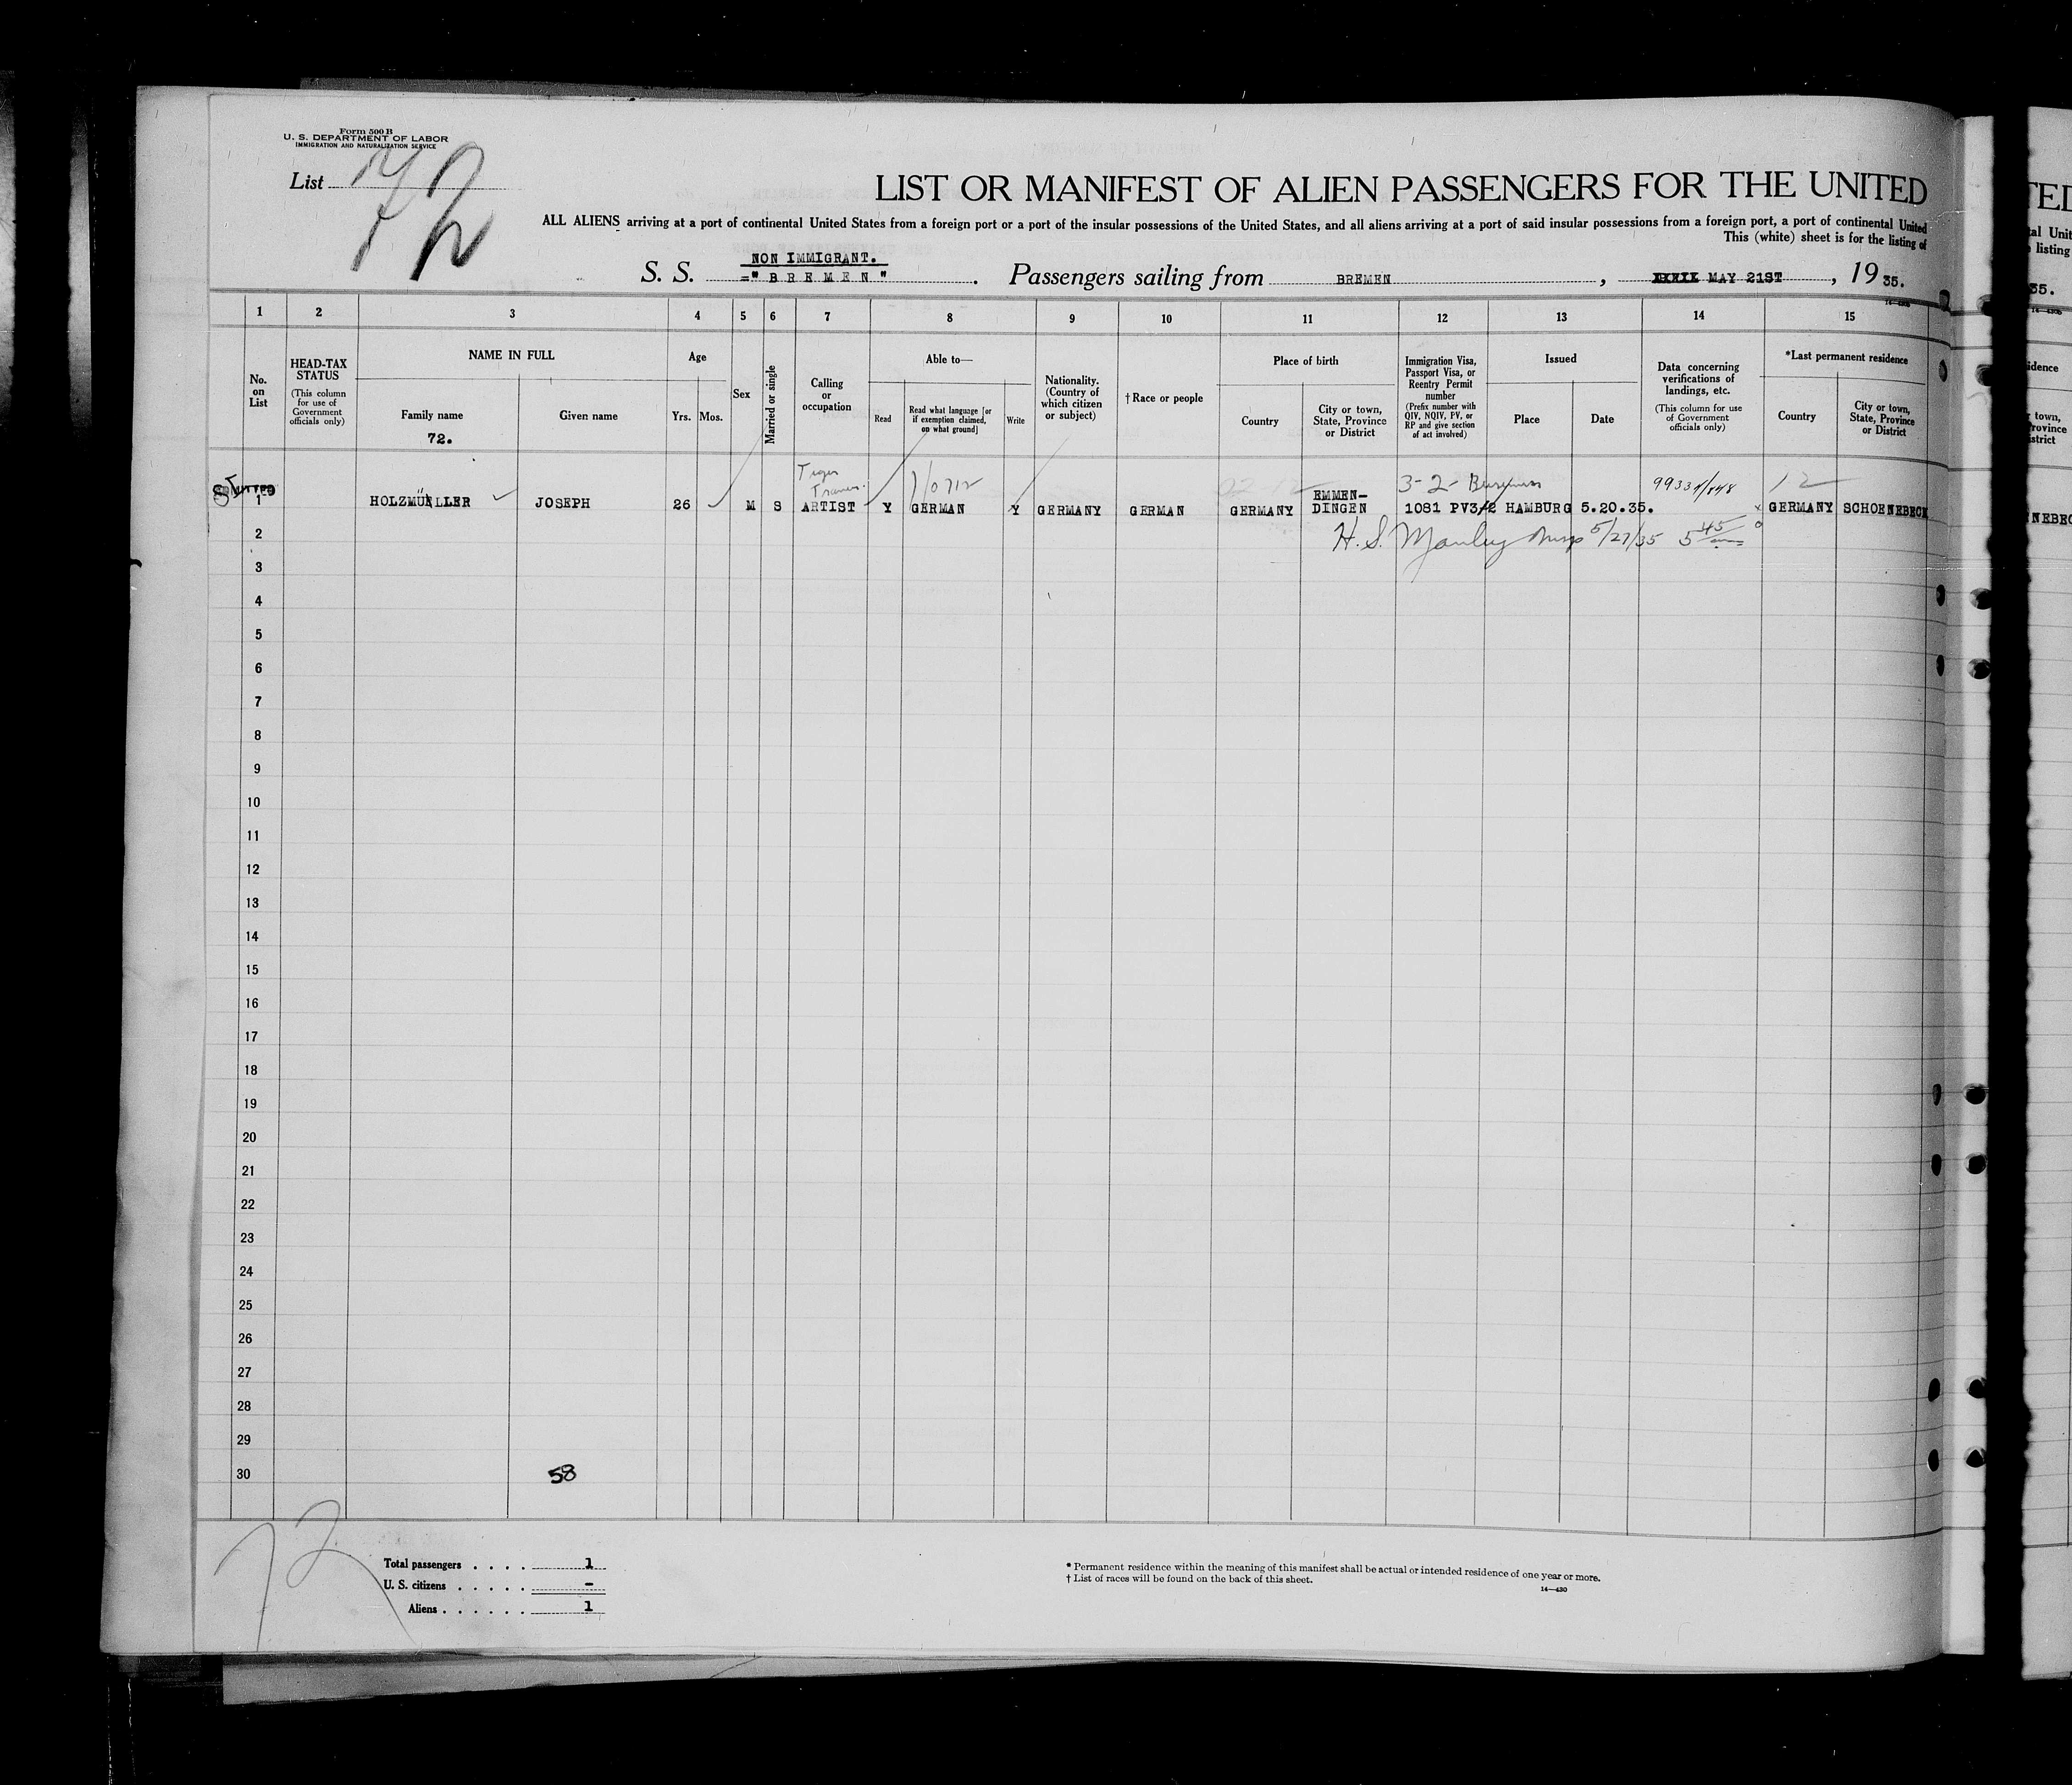 Form 500 B
U. S. DEPARTMENT OF LABOR
IMMIGRATION AND NATURALIZATION SERVICE
List 72
LIST OR MANIFEST OF ALIEN PASSENGERS FOR THE UNITED
ALL ALIENS arriving at a port of continental United States from a foreign port or a port of the insular possessions of the United States, and all aliens arriving at a port of said insular possessions from a foreign port, a port of continental United
This (white) sheet is for the listing of
NON IMMIGRANT.
S. S. ="BREMEN". Passengers sailing from BREMEN, MAY 21ST, 1935.
1 2 3 4 5 6 7 8 9 10 11 12 13 14 15
No. on List
HEAD-TAX STATUS (This column for use of Government officials only)
NAME IN FULL
Family name
72.
Given name
Age
Yrs. Mos.
Sex
Married or single
Calling or occupation
Able to—
Read
Read what language [or if exemption claimed, on what ground]
Write
Nationality. (Country of which citizen or subject)
† Race or people
Place of birth
Country
City or town, State, Province or District
Immigration Visa, Passport Visa, or Reentry Permit number (Prefix number with QIV, NQIV, PV, or RP and give section of act involved)
Issued
Place
Date
Data concerning verifications of landings, etc. (This column for use of Government officials only)
*Last permanent residence
Country
City or town, State, Province or District
Tiger Trainer. 3-2- Business 12
1 HOLZMÜLLER JOSEPH 26 M S ARTIST Y GERMAN Y GERMANY GERMAN GERMANY EMMEN-DINGEN 1081 PV3/2 HAMBURG 5.20.35. GERMANY SCHOENEBECK
H. S. Manley Insp 5/27/35 5 45
2
3
4
5
6
7
8
9
10
11
12
13
14
15
16
17
18
19
20
21
22
23
24
25
26
27
28
29
30
58
72
Total passengers . . . . 1
U. S. citizens . . . . . -
Aliens . . . . . . 1
* Permanent residence within the meaning of this manifest shall be actual or intended residence of one year or more.
† List of races will be found on the back of this sheet.
14—430